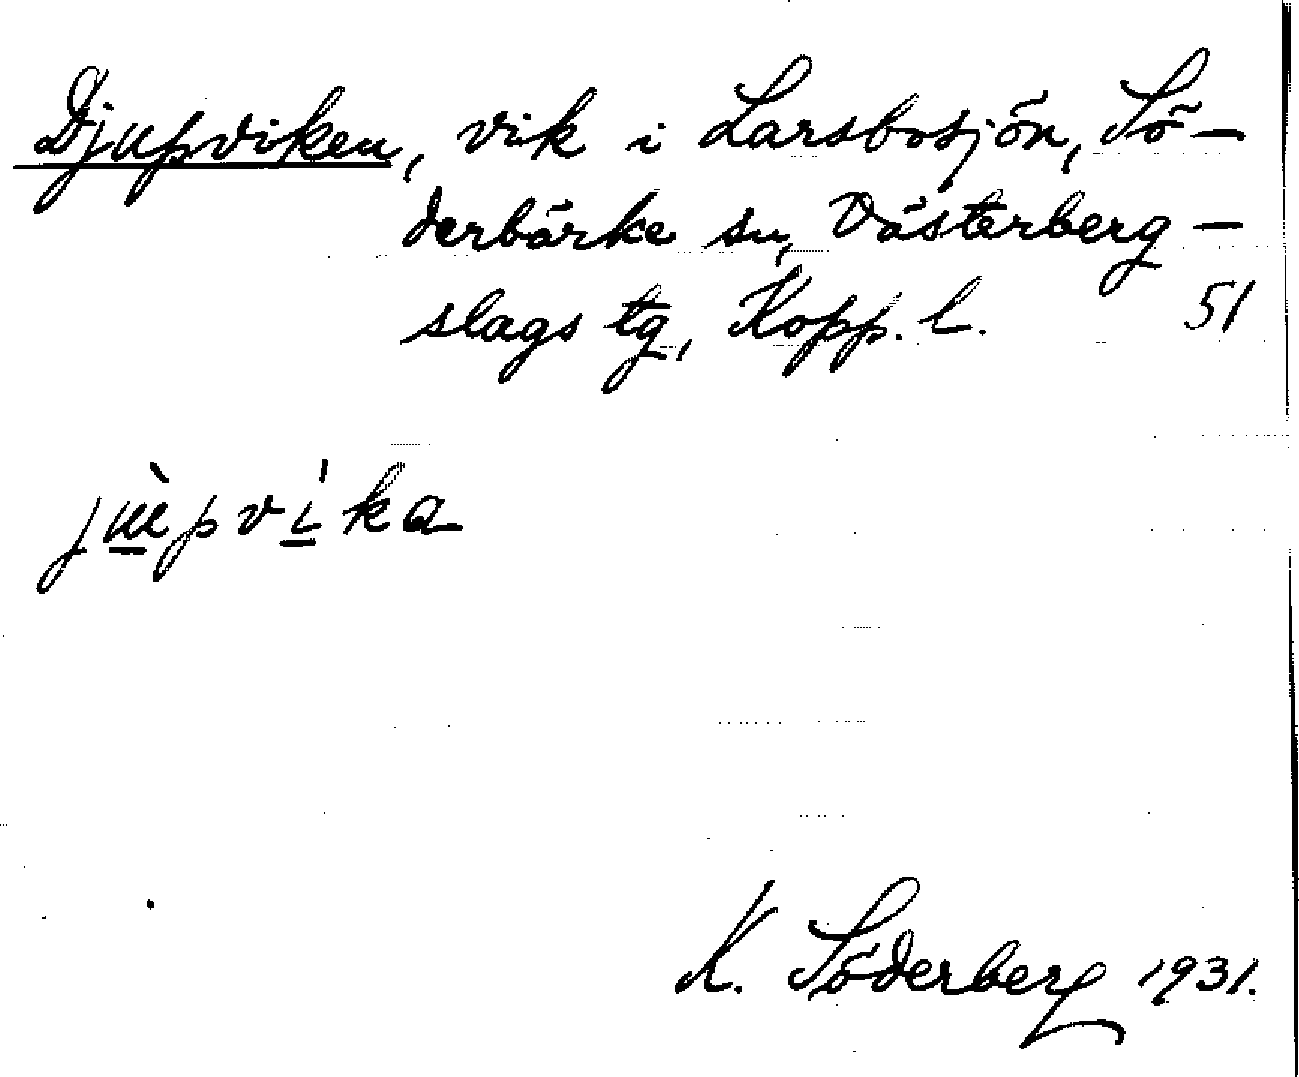 Djupviken, vik i Larsbosjön, Sö-
derbärke sn, Västerberg-
slags tg, Kopp. l. 51
jɯ̀pvíka
K. Söderberg 1931.